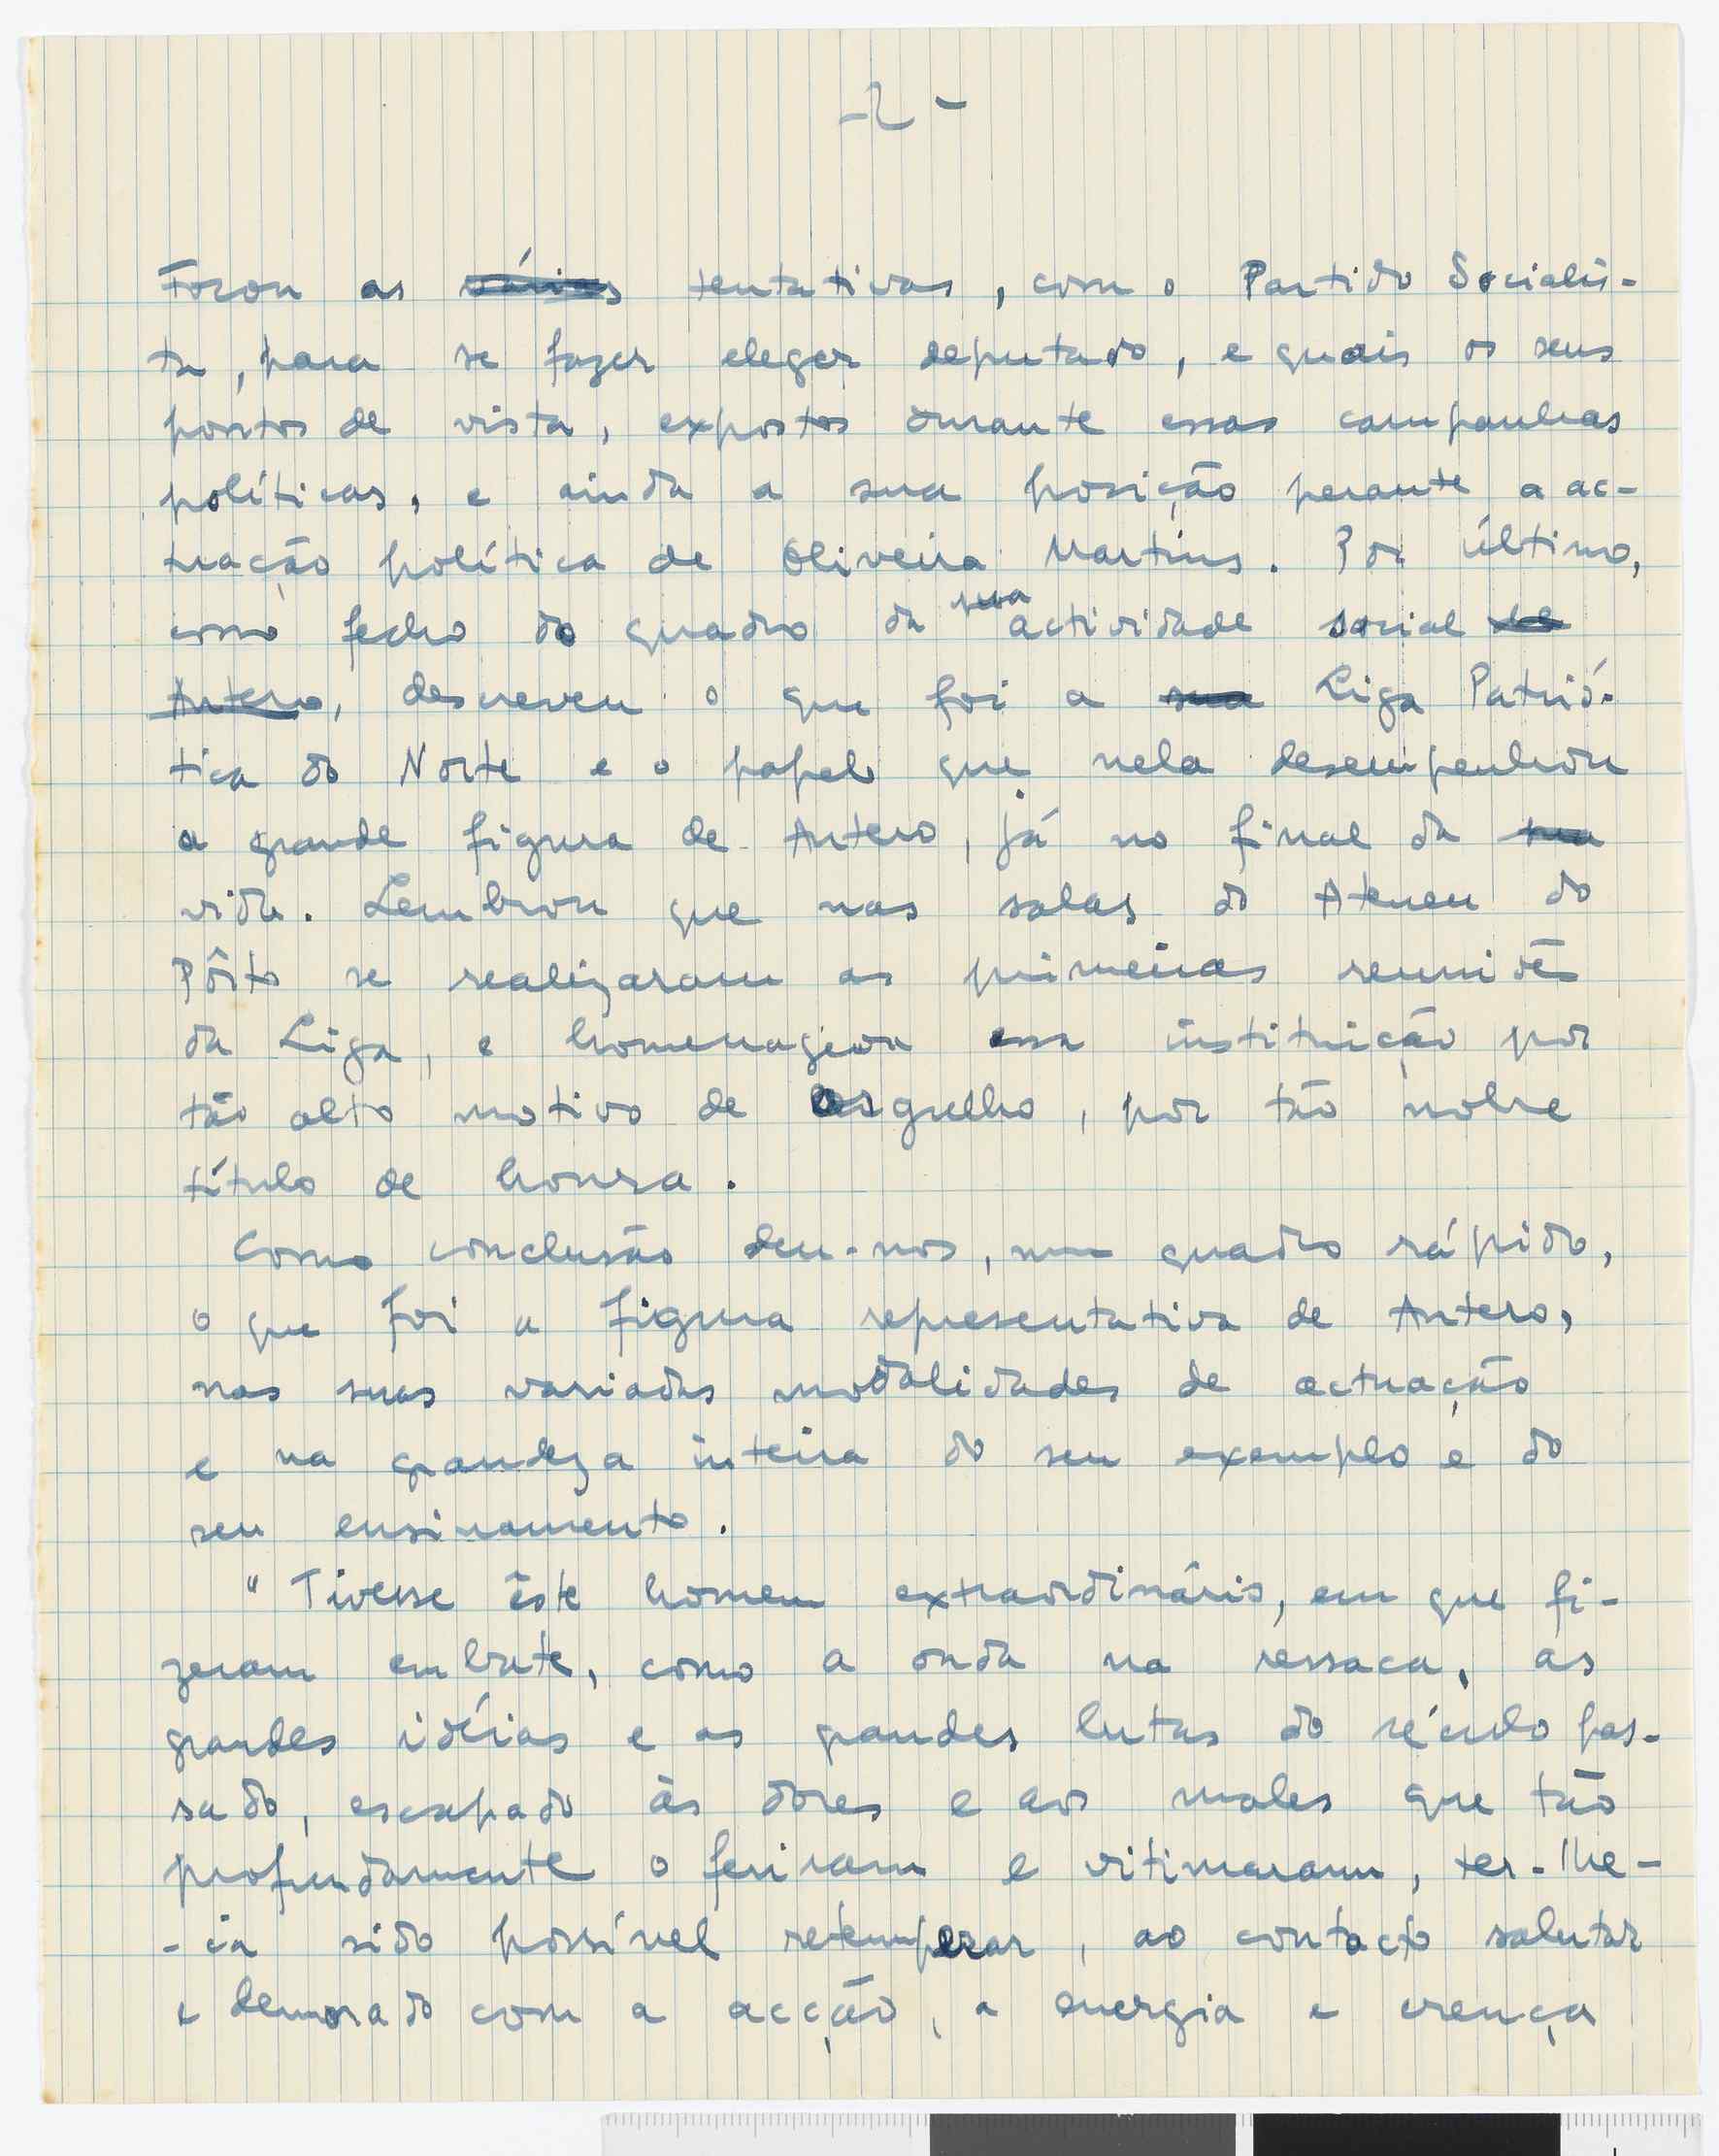 -2-
Focou as ~~várias~~ tentativas, com o Partido Socialis-
ta, para se fazer eleger deputado, e quais os seus
pontos de vista, expostos durante essas campanhas
políticas, e ainda a sua posição perante a ac-
tuação política de Oliveira Martins. Por último,
como fecho do quadro da sua actividade social ~~de~~
~~Antero~~, descreveu o que foi a ~~sua~~ Liga Patrió-
tica do Norte e o papel que nela desempenhou
a grande figura de Antero, já no final da ~~sua~~
vida. Lembrou que nas salas do Ateneu do
Pôrto se realizaram as primeiras reuniões
da Liga, e homenageou essa instituição por
tão alto motivo de orgulho, por tão nobre
título de honra.
Como conclusão deu-nos, num quadro rápido,
o que foi a figura representativa de Antero,
nas suas variadas modalidades de actuação
e na grandeza inteira do seu exemplo e do
seu ensinamento.
"Tivesse êste homem extraordinário, em que fi-
zeram embate, como a onda na ressaca, as
grandes idéias e as grandes lutas do século pas-
sado, escapado às dores e aos males que tão
profundamente o feriram e vitimaram, ter-lhe-
-ia sido possível retemperar, ao contacto salutar
e demorado com a acção, a energia e crença